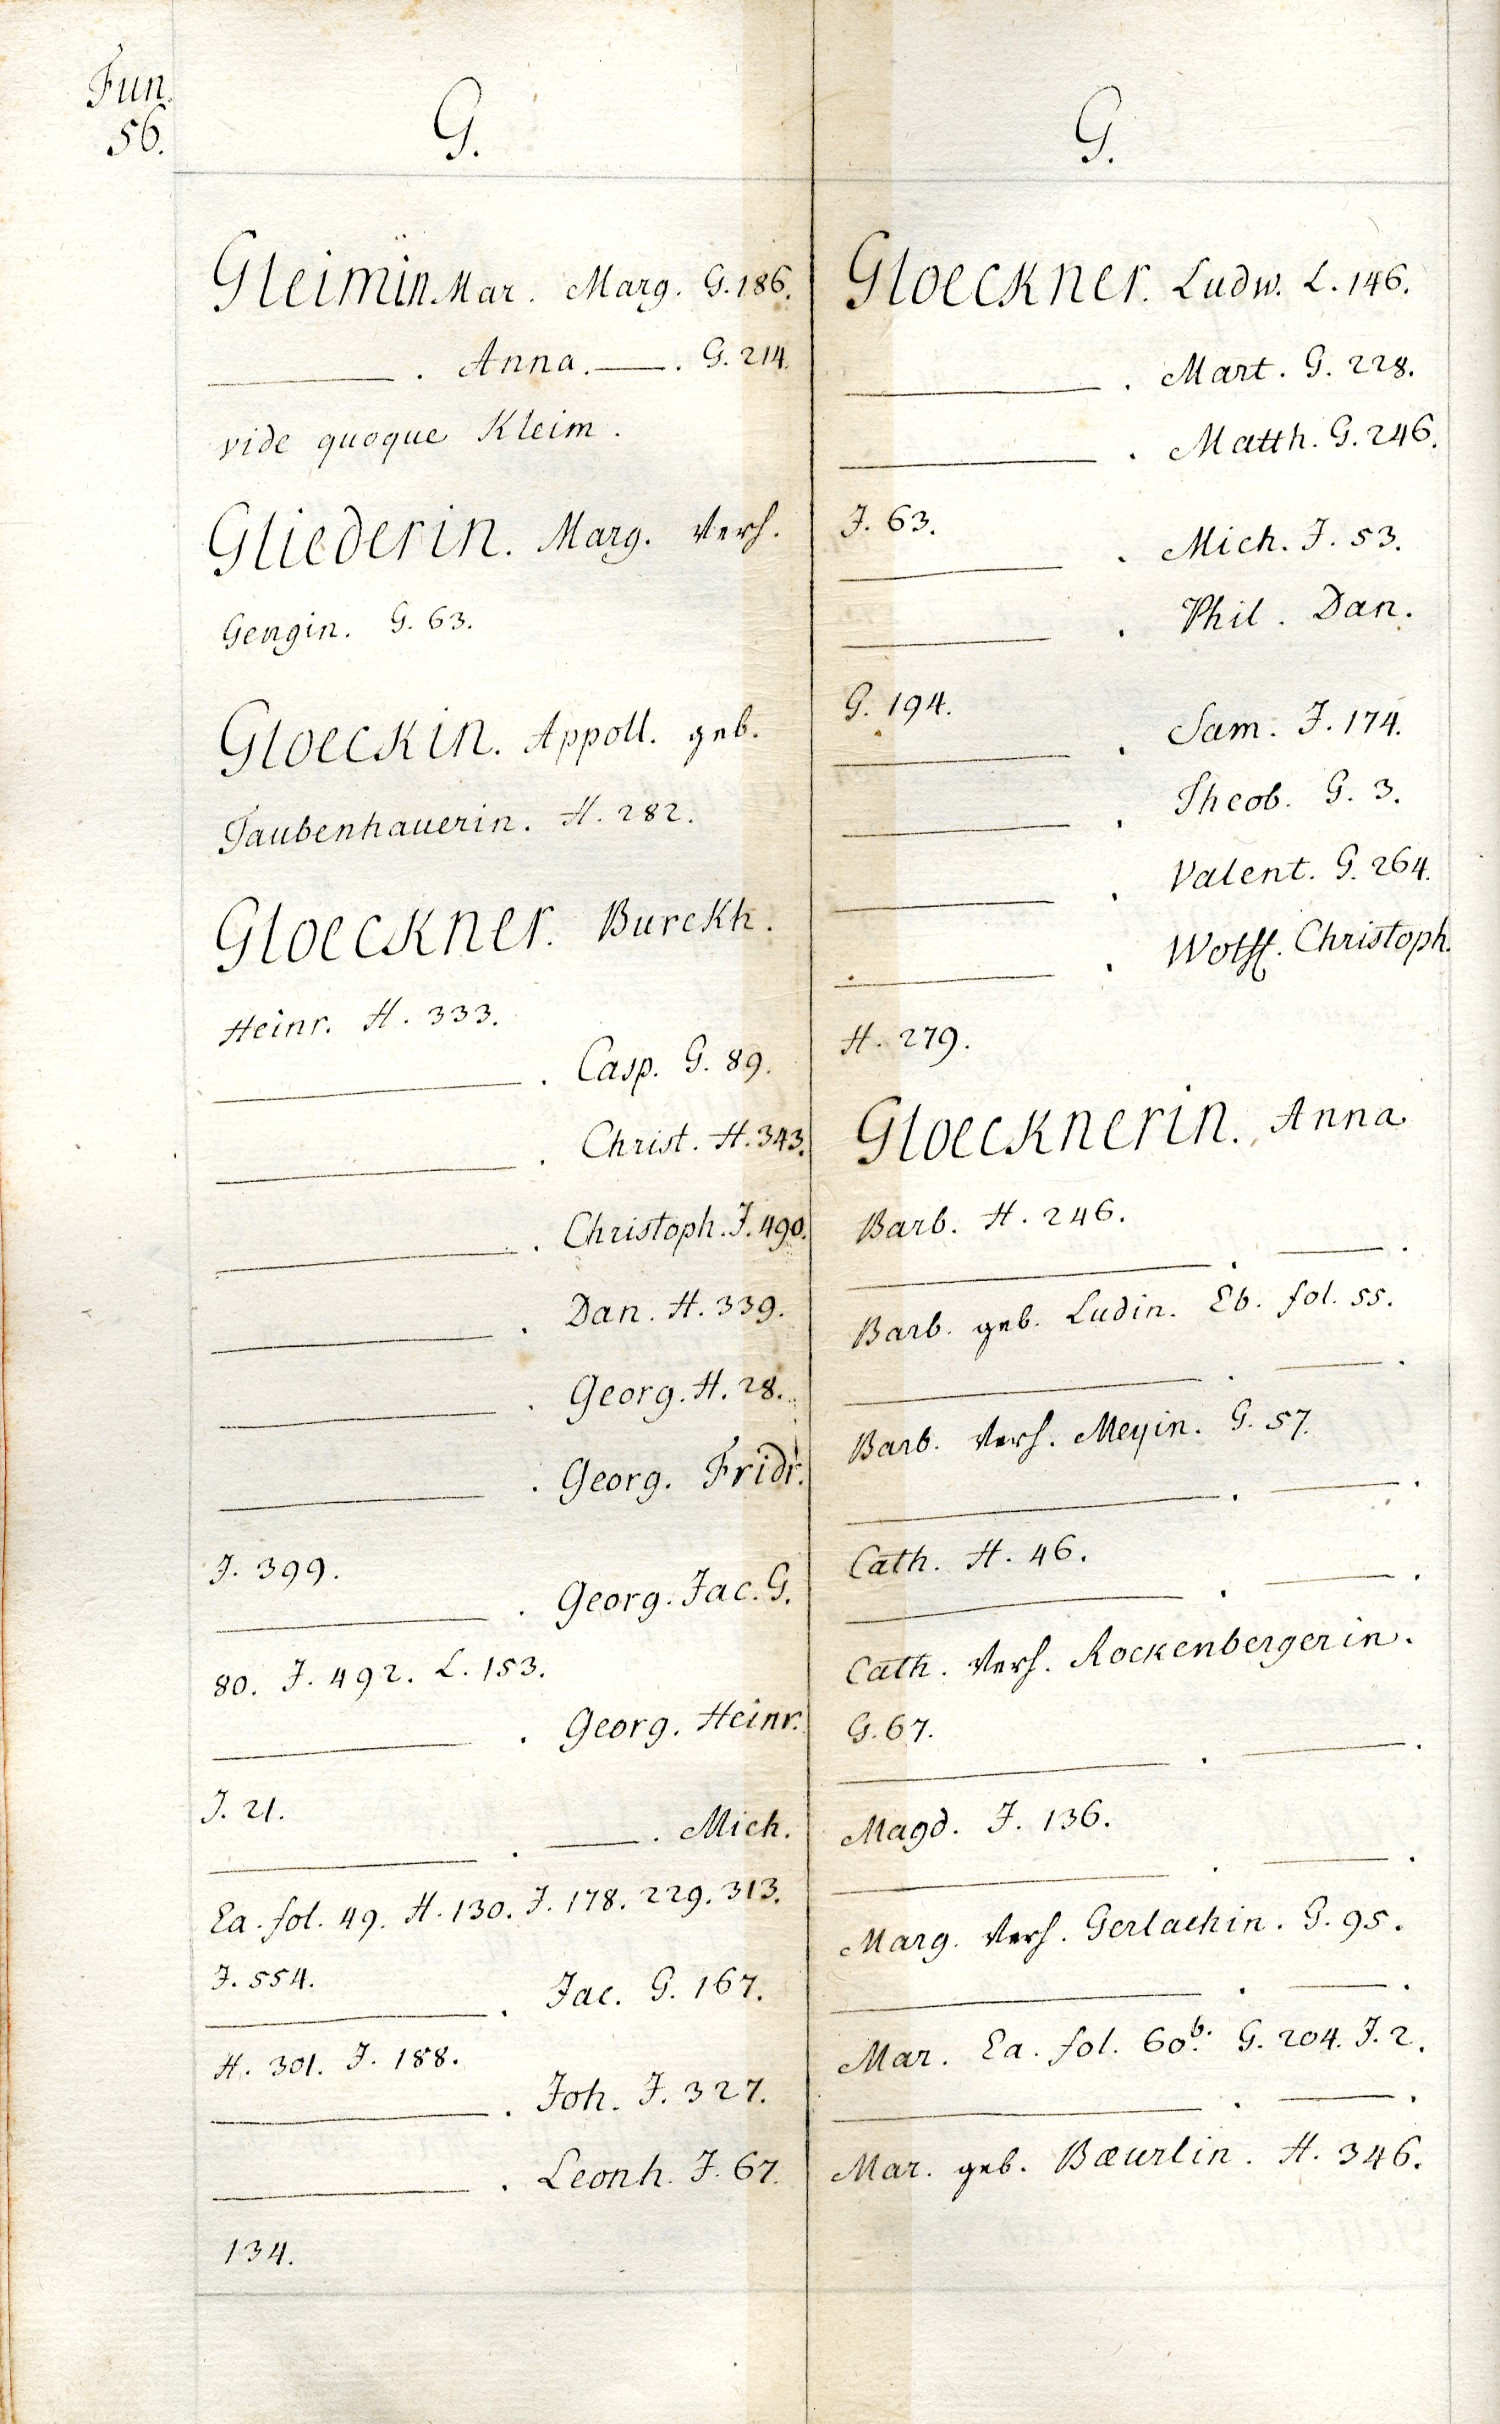 Fun.
56.
G.
Gleimin. Mar. Marg. G. 186.
———. Anna. ——. G. 214.
vide quoque Kleim.
Gliederin. Marg. Verh.
Gengin. G. 63.
Gloeckin. Appoll. geb.
Taubenhauerin. H. 282.
Gloeckner. Burckh.
Heinr. H. 333.
———. Casp. G. 89.
———. Christ. H. 343.
———. Christoph. J. 490.
———. Dan. H. 339.
———. Georg. H. 28.
———. Georg. Fridr.
J. 399.
———. Georg. Jac. G.
80. J. 492. L. 153.
———. Georg. Heinr.
J. 21.
———. ——. Mich.
Ea. fol. 49. H. 130. J. 178. 229. 313.
J. 554.
———. Jac. G. 167.
H. 301. J. 188.
———. Joh. J. 327.
———. Leonh. J. 67.
134.
G.
Gloeckner. Ludw. L. 146.
———. Mart. G. 228.
———. Matth. G. 246.
J. 63.
———. Mich. J. 53.
———. Phil. Dan.
G. 194.
———. Sam. J. 174.
———. Theob. G. 3.
———. Valent. G. 264.
———. Wolff. Christoph.
H. 279.
Gloecknerin. Anna
Barb. H. 246.
———. ——.
Barb. geb. Ludin. Eb. fol. 55.
———. ——.
Barb. Verh. Meyin. G. 57.
———. ——.
Cath. H. 46.
———. ——.
Cath. Verh. Rockenbergerin.
G. 67.
———. ——.
Magd. J. 136.
———. ——.
Marg. Verh. Gerlachin. G. 95.
———. ——.
Mar. Ea. fol. 60b. G. 204. J. 2.
———. ——.
Mar. geb. Bæurlin. H. 346.